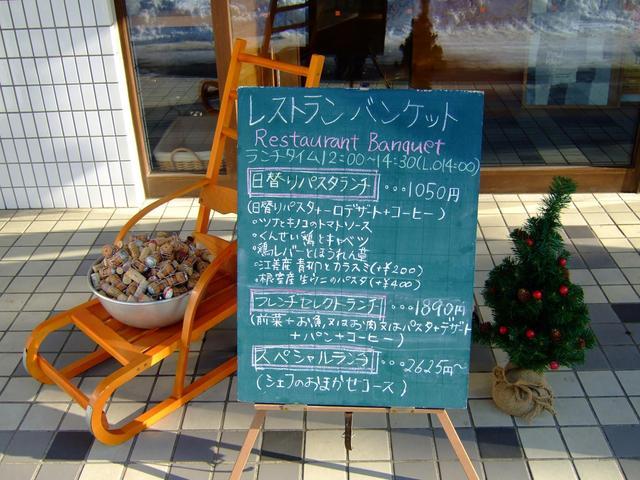 レストラン バンケット
Restaurant Banquet
ランチタイム12:00~14:30(L.O14:00)
日替りパスタランチ ...1050円
(日替りパスタ+一口デザート+コーヒー)
・ツナとキノコのトマトソース
・くんせい鶏とキャベツ
・鶏レバーとほうれん草
・江差産 とカラスミ(+¥200)
・根室産 生ウニのパスタ(+¥400)
フレンチセレクトランチ ...1890円
(前菜+お魚又はお肉又はパスタ+デザート
+パン+コーヒー)
スペシャルランチ ...2625円~
(シェフのおまかせコース)